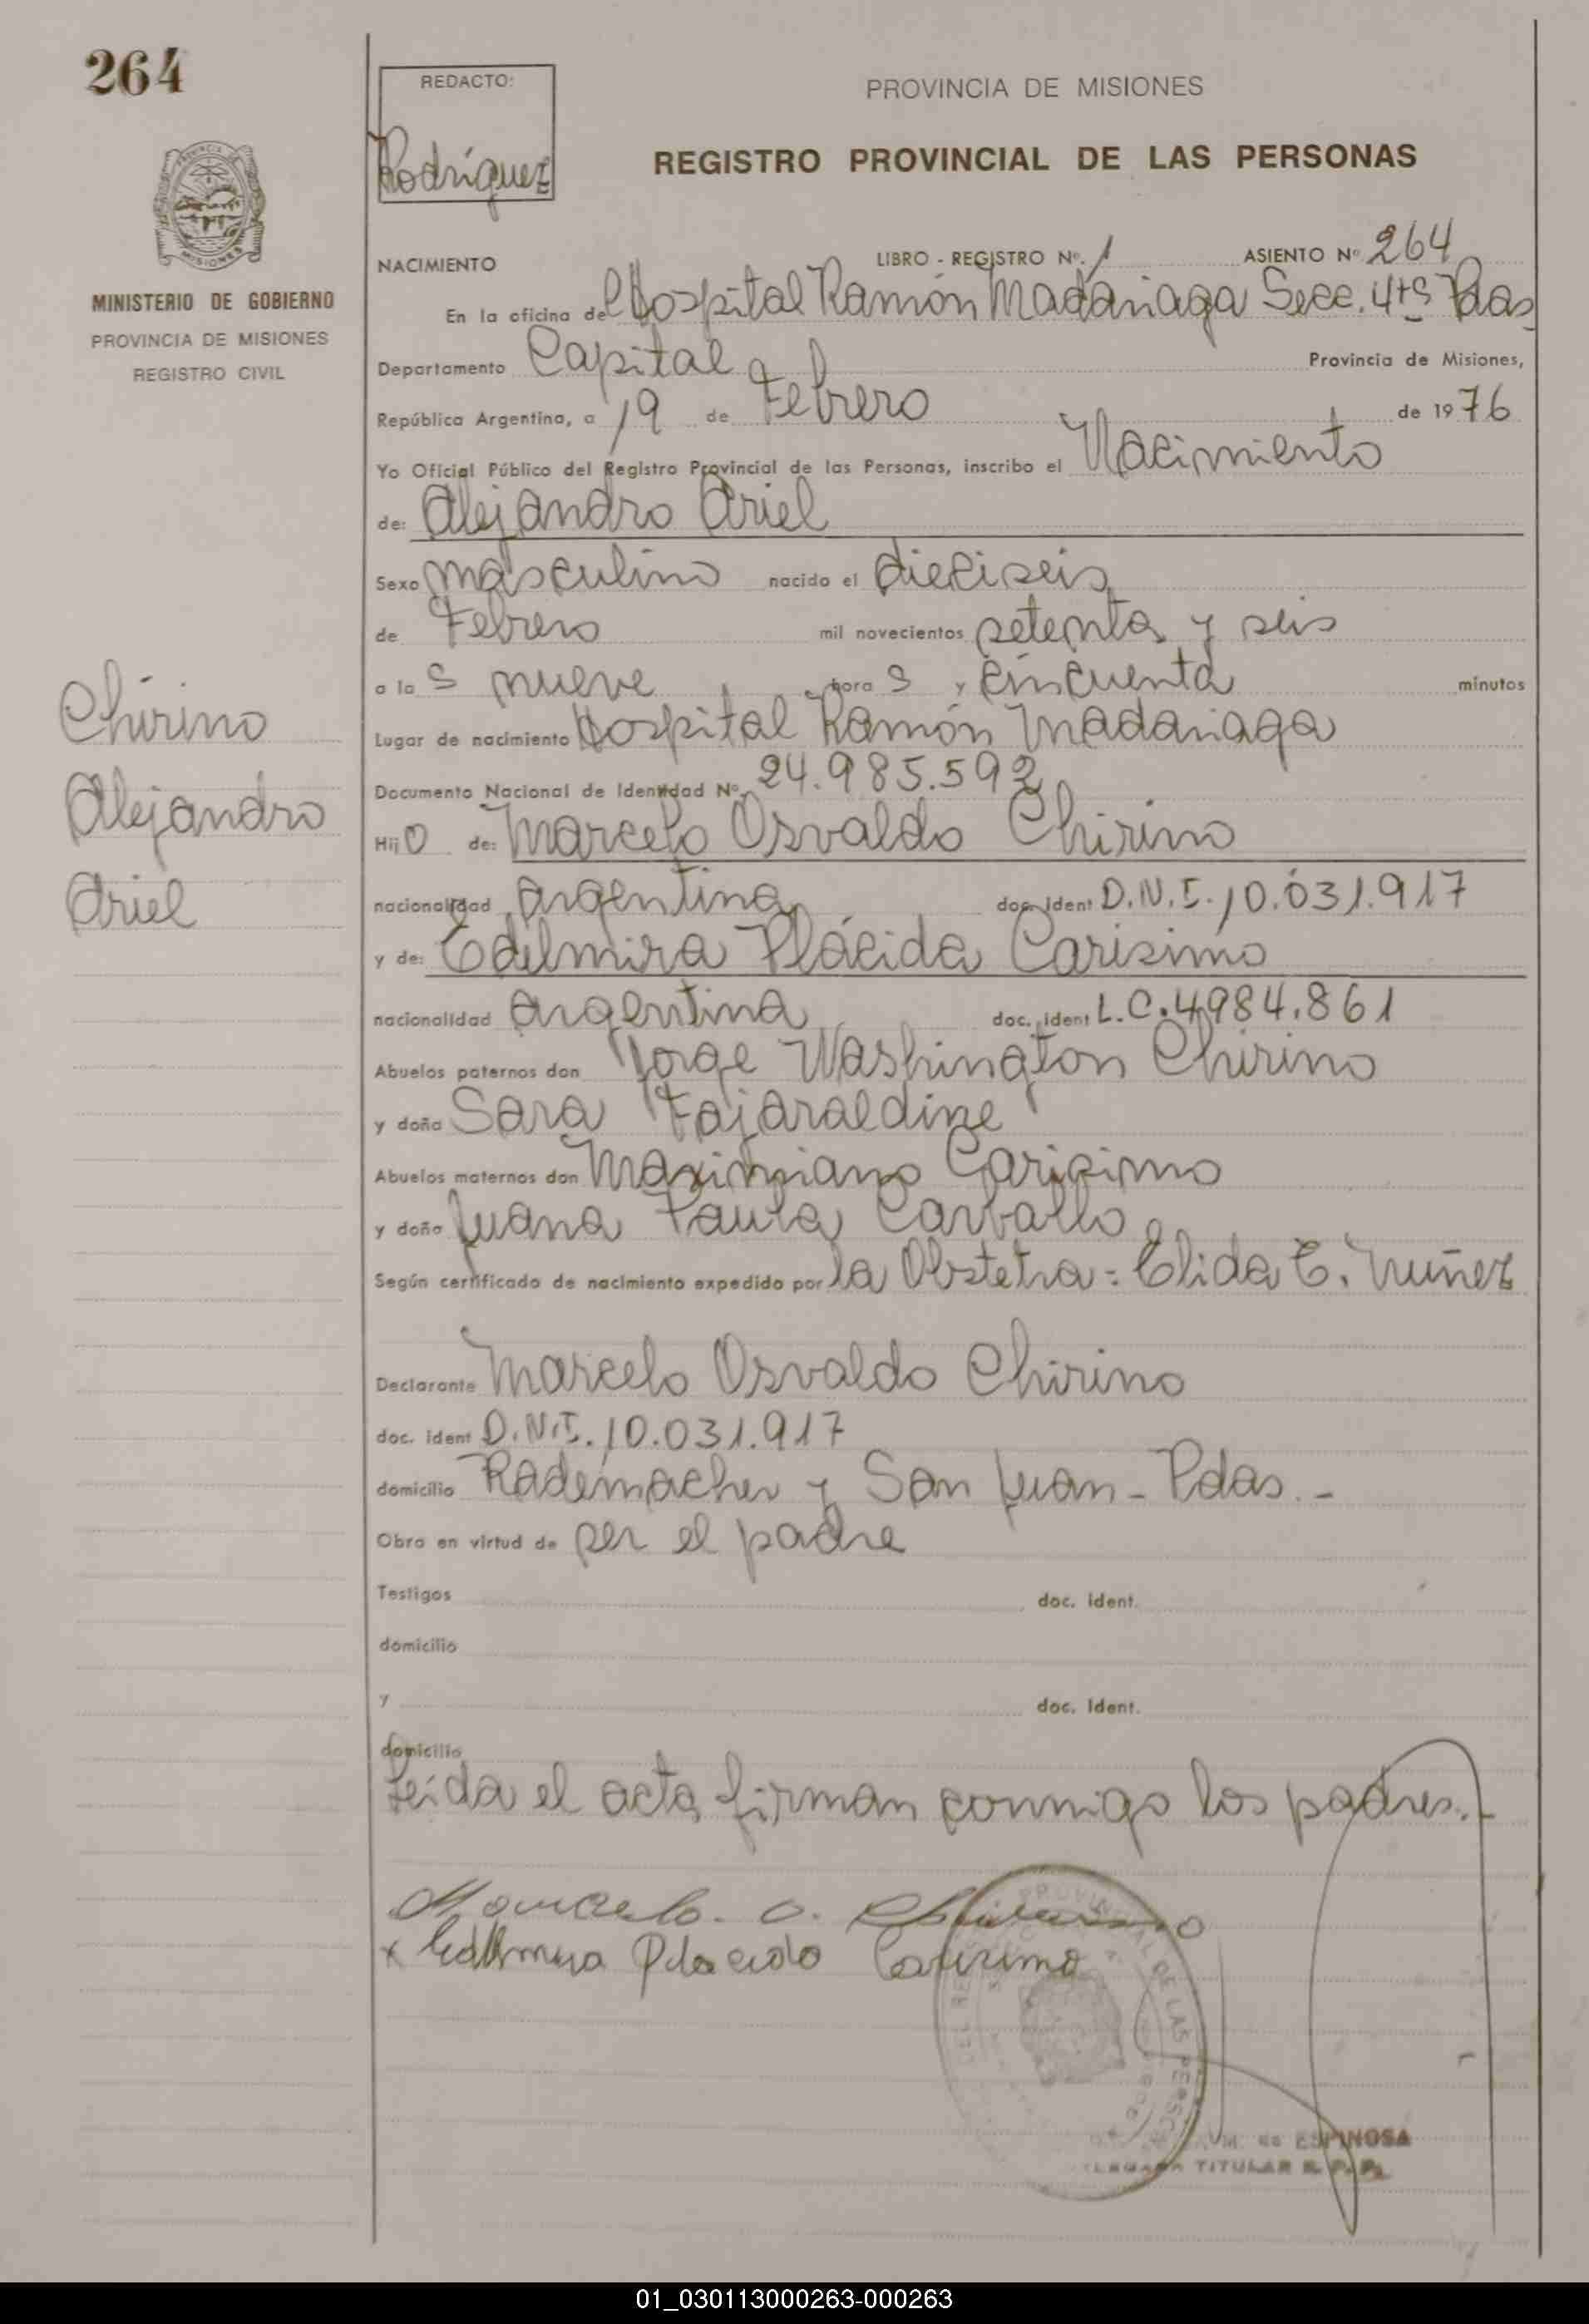 264
PROVINCIA DE
MISIONES
MINISTERIO DE GOBIERNO
PROVINCIA DE MISIONES
REGISTRO CIVIL
Chirino
Alejandro
Ariel
REDACTO:
Rodríguez
PROVINCIA DE MISIONES
REGISTRO PROVINCIAL DE LAS PERSONAS
NACIMIENTO LIBRO - REGISTRO Nº. 1 ASIENTO Nº 264
En la oficina del Hospital Ramón Madariaga Secc. 4ta Pdas
Departamento Capital Provincia de Misiones,
República Argentina, a 19 de Febrero de 1976
Yo Oficial Público del Registro Provincial de las Personas, inscribo el Nacimiento
de: Alejandro Ariel
Sexo masculino nacido el dieciseis
de Febrero mil novecientos setenta y seis
a las nueve horas y cincuenta minutos
Lugar de nacimiento Hospital Ramón Madariaga
Documento Nacional de Identidad Nº. 24.985.592
Hijo de: Marcelo Osvaldo Chirino
nacionalidad Argentina doc. ident D.N.I. 10.031.917
y de: Edilmira Plácida Carisimo
nacionalidad Argentina doc. ident L.C. 4984.861
Abuelos paternos don Jorge Washington Chirino
y doña Sara Fajaraldine
Abuelos maternos don Maximiano Carisimo
y doña Juana Paula Carballo
Según certificado de nacimiento expedido por la Obstetra: Elida E. Nuñez
Declarante Marcelo Osvaldo Chirino
doc. ident D.N.I. 10.031.917
domicilio Rademacher y San Juan - Pdas. -
Obra en virtud de ser el padre
Testigos doc. ident.
domicilio
y doc. Ident.
domicilio
Leida el acta firman conmigo los padres.-
Marcelo. O. Chirino
x Edilmira Placida Carisimo
DE LAS
M. de ESPINOSA
TITULAR R. P. P.
01_030113000263-000263